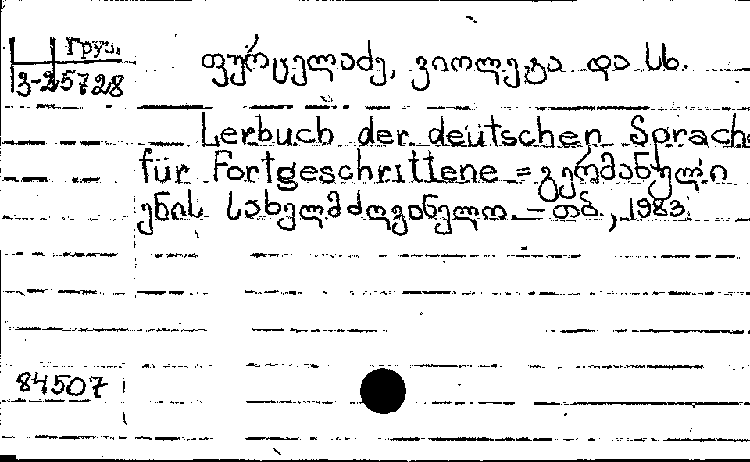 Груз.
3-25728
ფურცელაძე, ვიოლეტა და სხ.
Lerbuch der deutschen Sprache
für Fortgeschrittene = გერმანული
ენის სახელმძღვანელო. – თბ., 1983.
84507